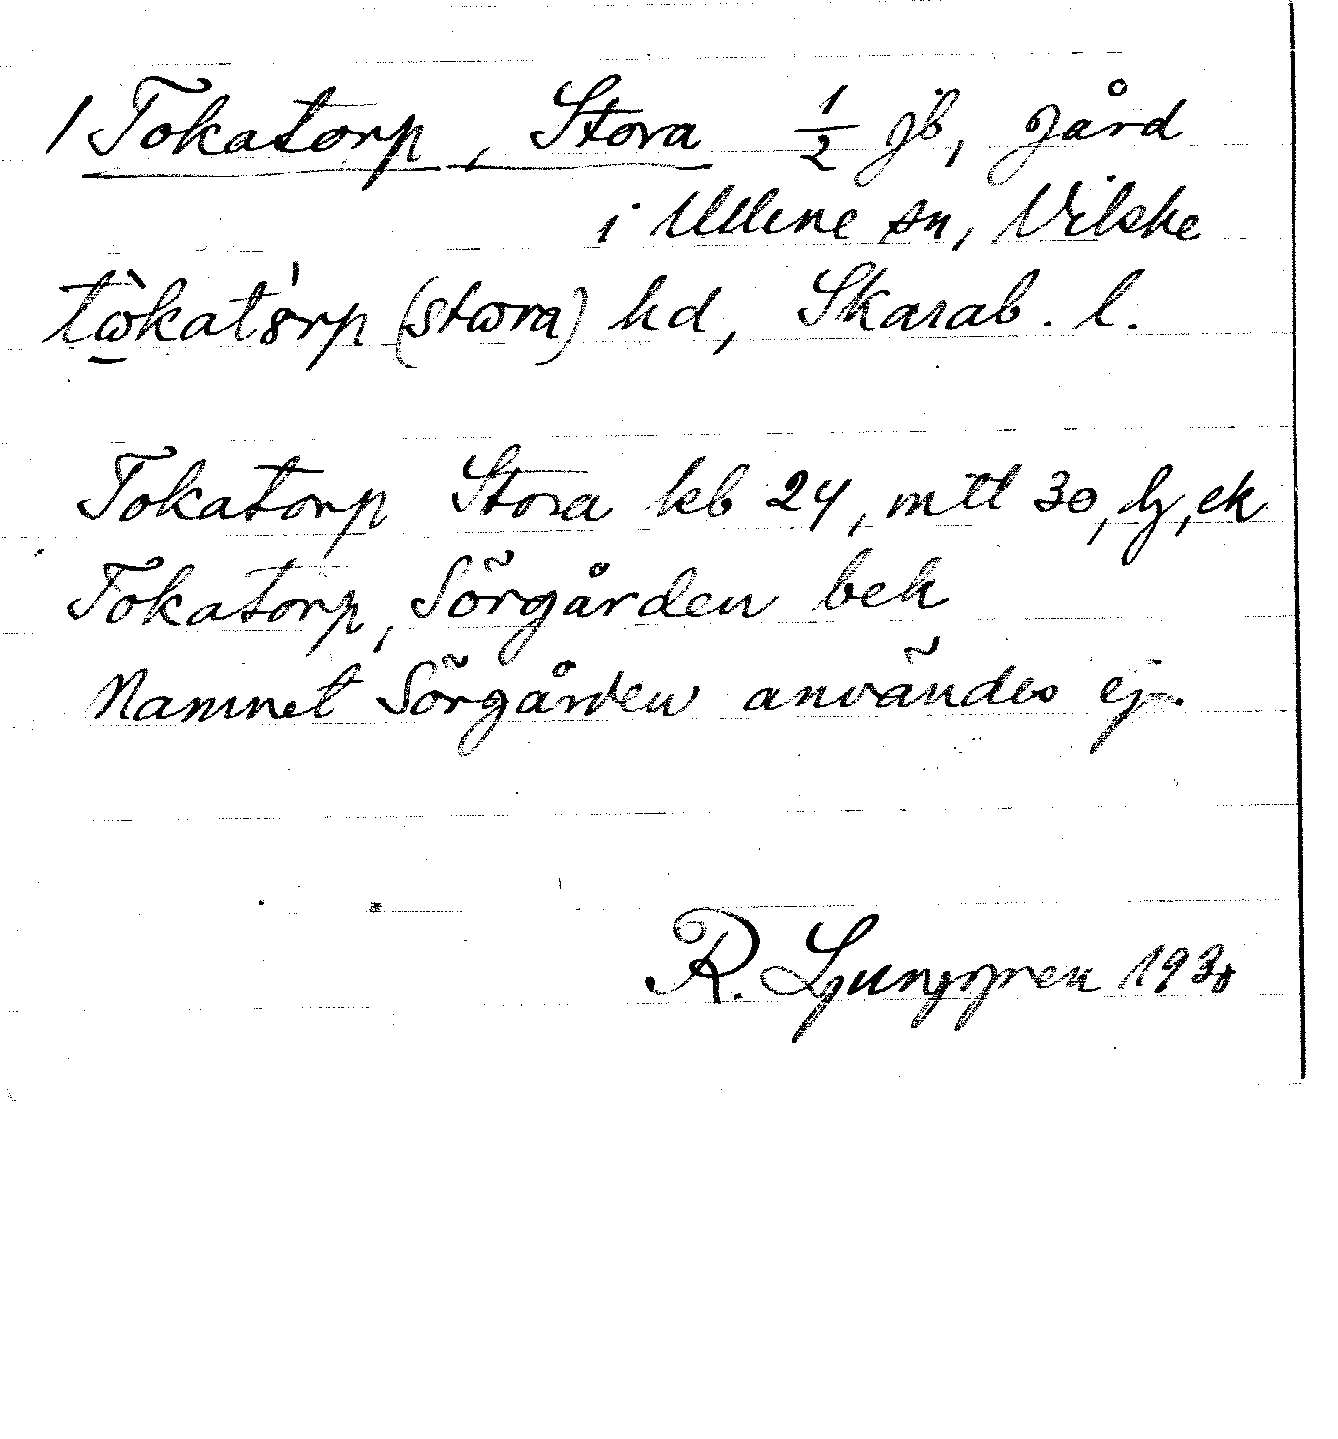 1 Tokatorp, Stora 1/2 jb, gård
i Ullene sn, Vilske
tωkatorp (stωra) hd, Skarab. l.
Tokatorp Stora kb 24, mtl 30, hj, ek
Tokatorp, Sörgården bek
Namnet Sörgården användes ej.
R. Ljunggren 1930